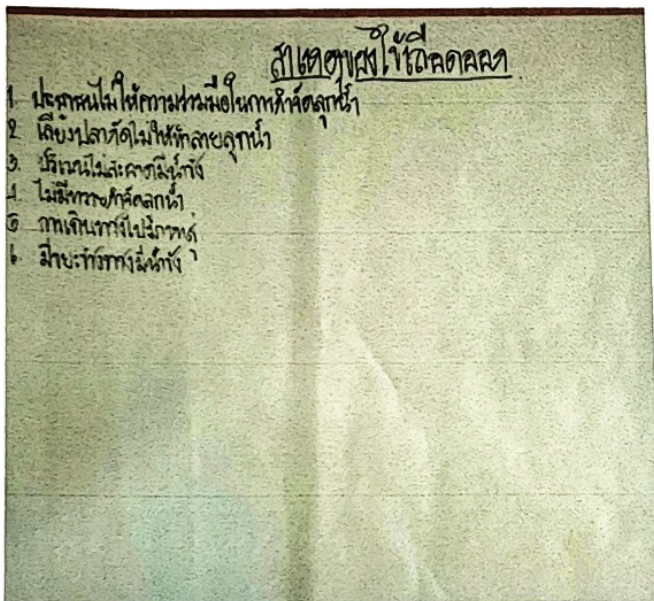 สาเหตุของไข้เลือดออก
1. ประชาชนไม่ให้ความร่วมมือในการกำจัดลูกน้ำ
2. เลี้ยงปลากัดไม่ให้ทำลายลูกน้ำ
3. บริเวณไม่สะอาดมีน้ำขัง
4. ไม่มีทรายกำจัดลูกน้ำ
5. การเดินทางไป
6. มีขยะ มีน้ำขัง